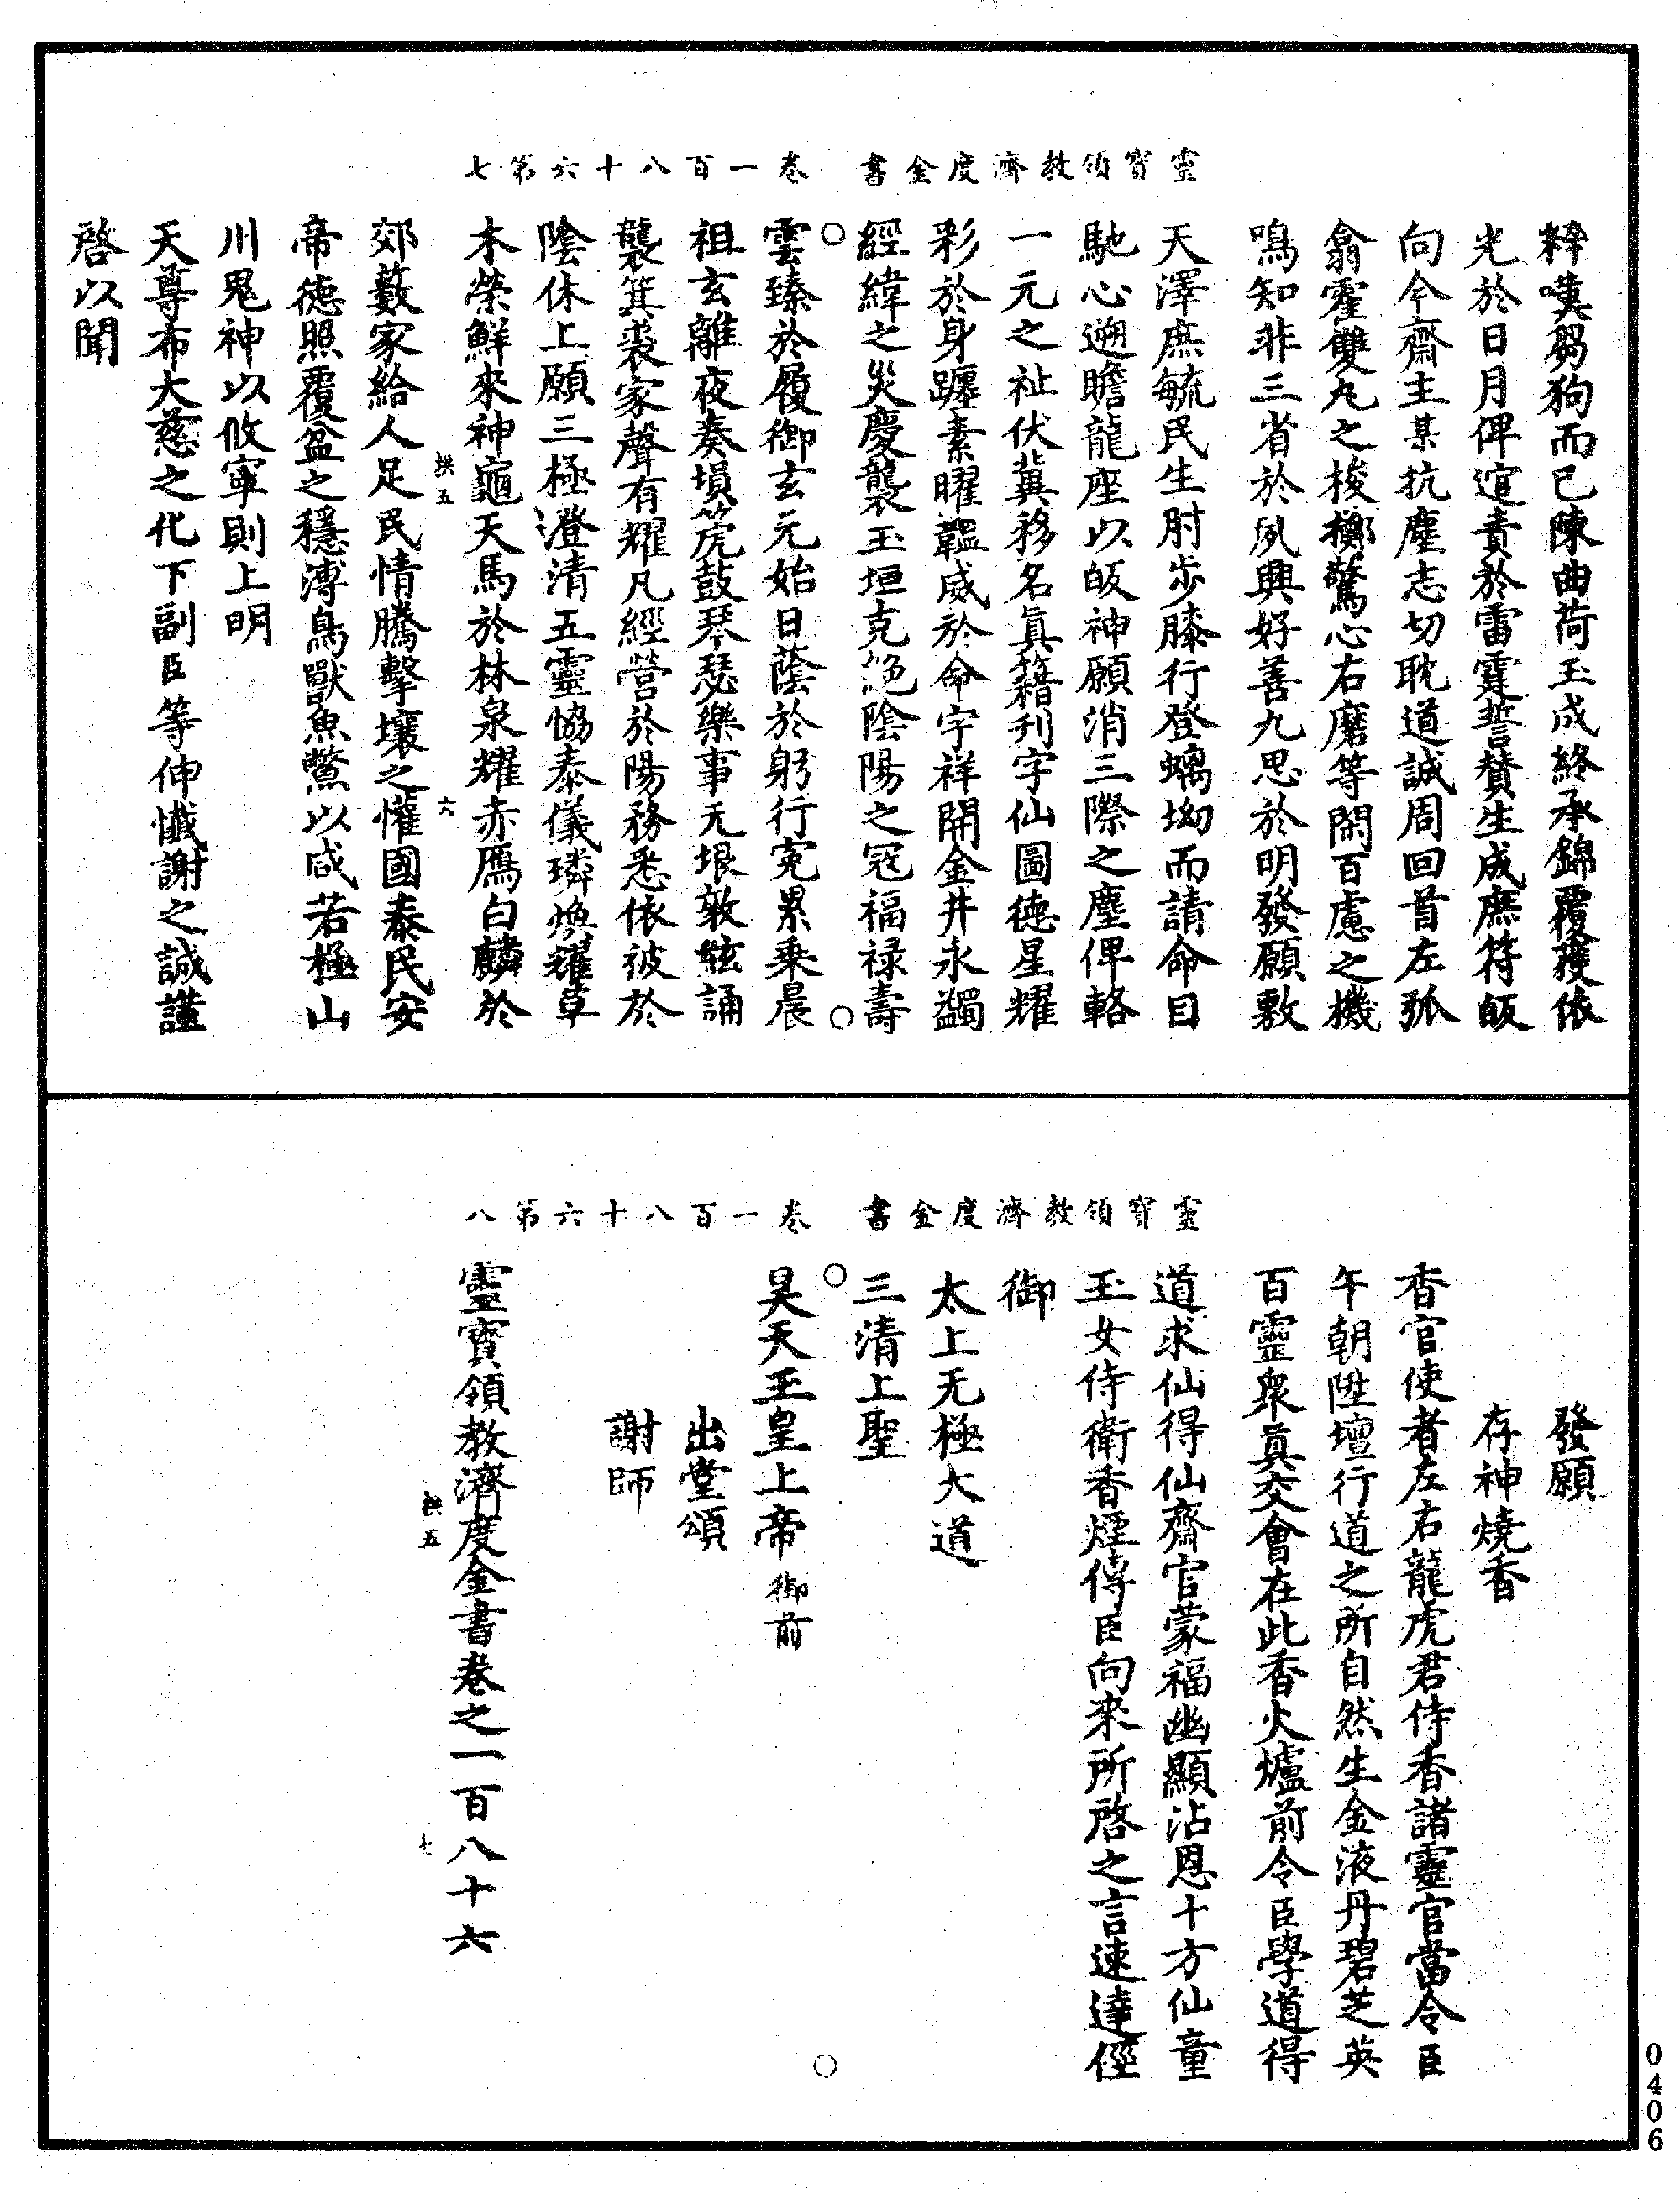 靈寶領教濟度金書　卷一百八十六第七
粹嘆芻狗而已陳曲荷玉成終承錦覆獲依
光於日月俾逭責於雷霆誓贊生成庶符皈
向今齋主某抗塵志切耽道誠周回首左弧
翕霍雙丸之梭擲驚心右磨等閑百慮之機
鳴知非三省於夙興好善九思於明發願敷
天澤庶毓民生肘步膝行登螭坳而請命目
馳心遡瞻龍座以皈神願消三際之塵俾輅
一元之祉伏冀移名眞籍刊字仙圖德星耀
彩於身躔素曜韞威於命宇祥開金井永蠲
經緯之災慶襲玉垣克絕陰陽之冦福祿壽
雲臻於履御玄元始日蔭於躬行寃累乗晨
祖玄離夜奏塤箎鼓琴瑟樂事无垠敦絃誦
襲箕裘家聲有耀凡經營於陽務悉依彼於
陰休上願三極澄清五靈恊泰儀璘煥耀草
木榮鮮來神龜天馬於林泉耀赤鴈白麟於
郊藪家給人足民情騰擊壤之懽國泰民安
帝德照覆盆之穩溥鳥獸魚鱉以咸若極山
川鬼神以攸寧則上明
天尊布大慈之化下副臣等伸懺謝之誠謹
啓以聞
拱五　六
靈寶領教濟度金書　卷一百八十六第八
發願
存神燒香
香官使者左右龍虎君侍香諸靈官當令臣
午朝陞壇行道之所自然生金液丹碧芝英
百靈衆眞交會在此香火爐前令臣學道得
道求仙得仙齋官蒙福幽顯沾恩十方仙童
玉女侍衛香煙傳臣向來所啓之言速達徑
御
太上无極大道
三清上聖
昊天玉皇上帝御前
出堂頌
謝師
靈寶領教濟度金書卷之一百八十六
拱五　七
0406